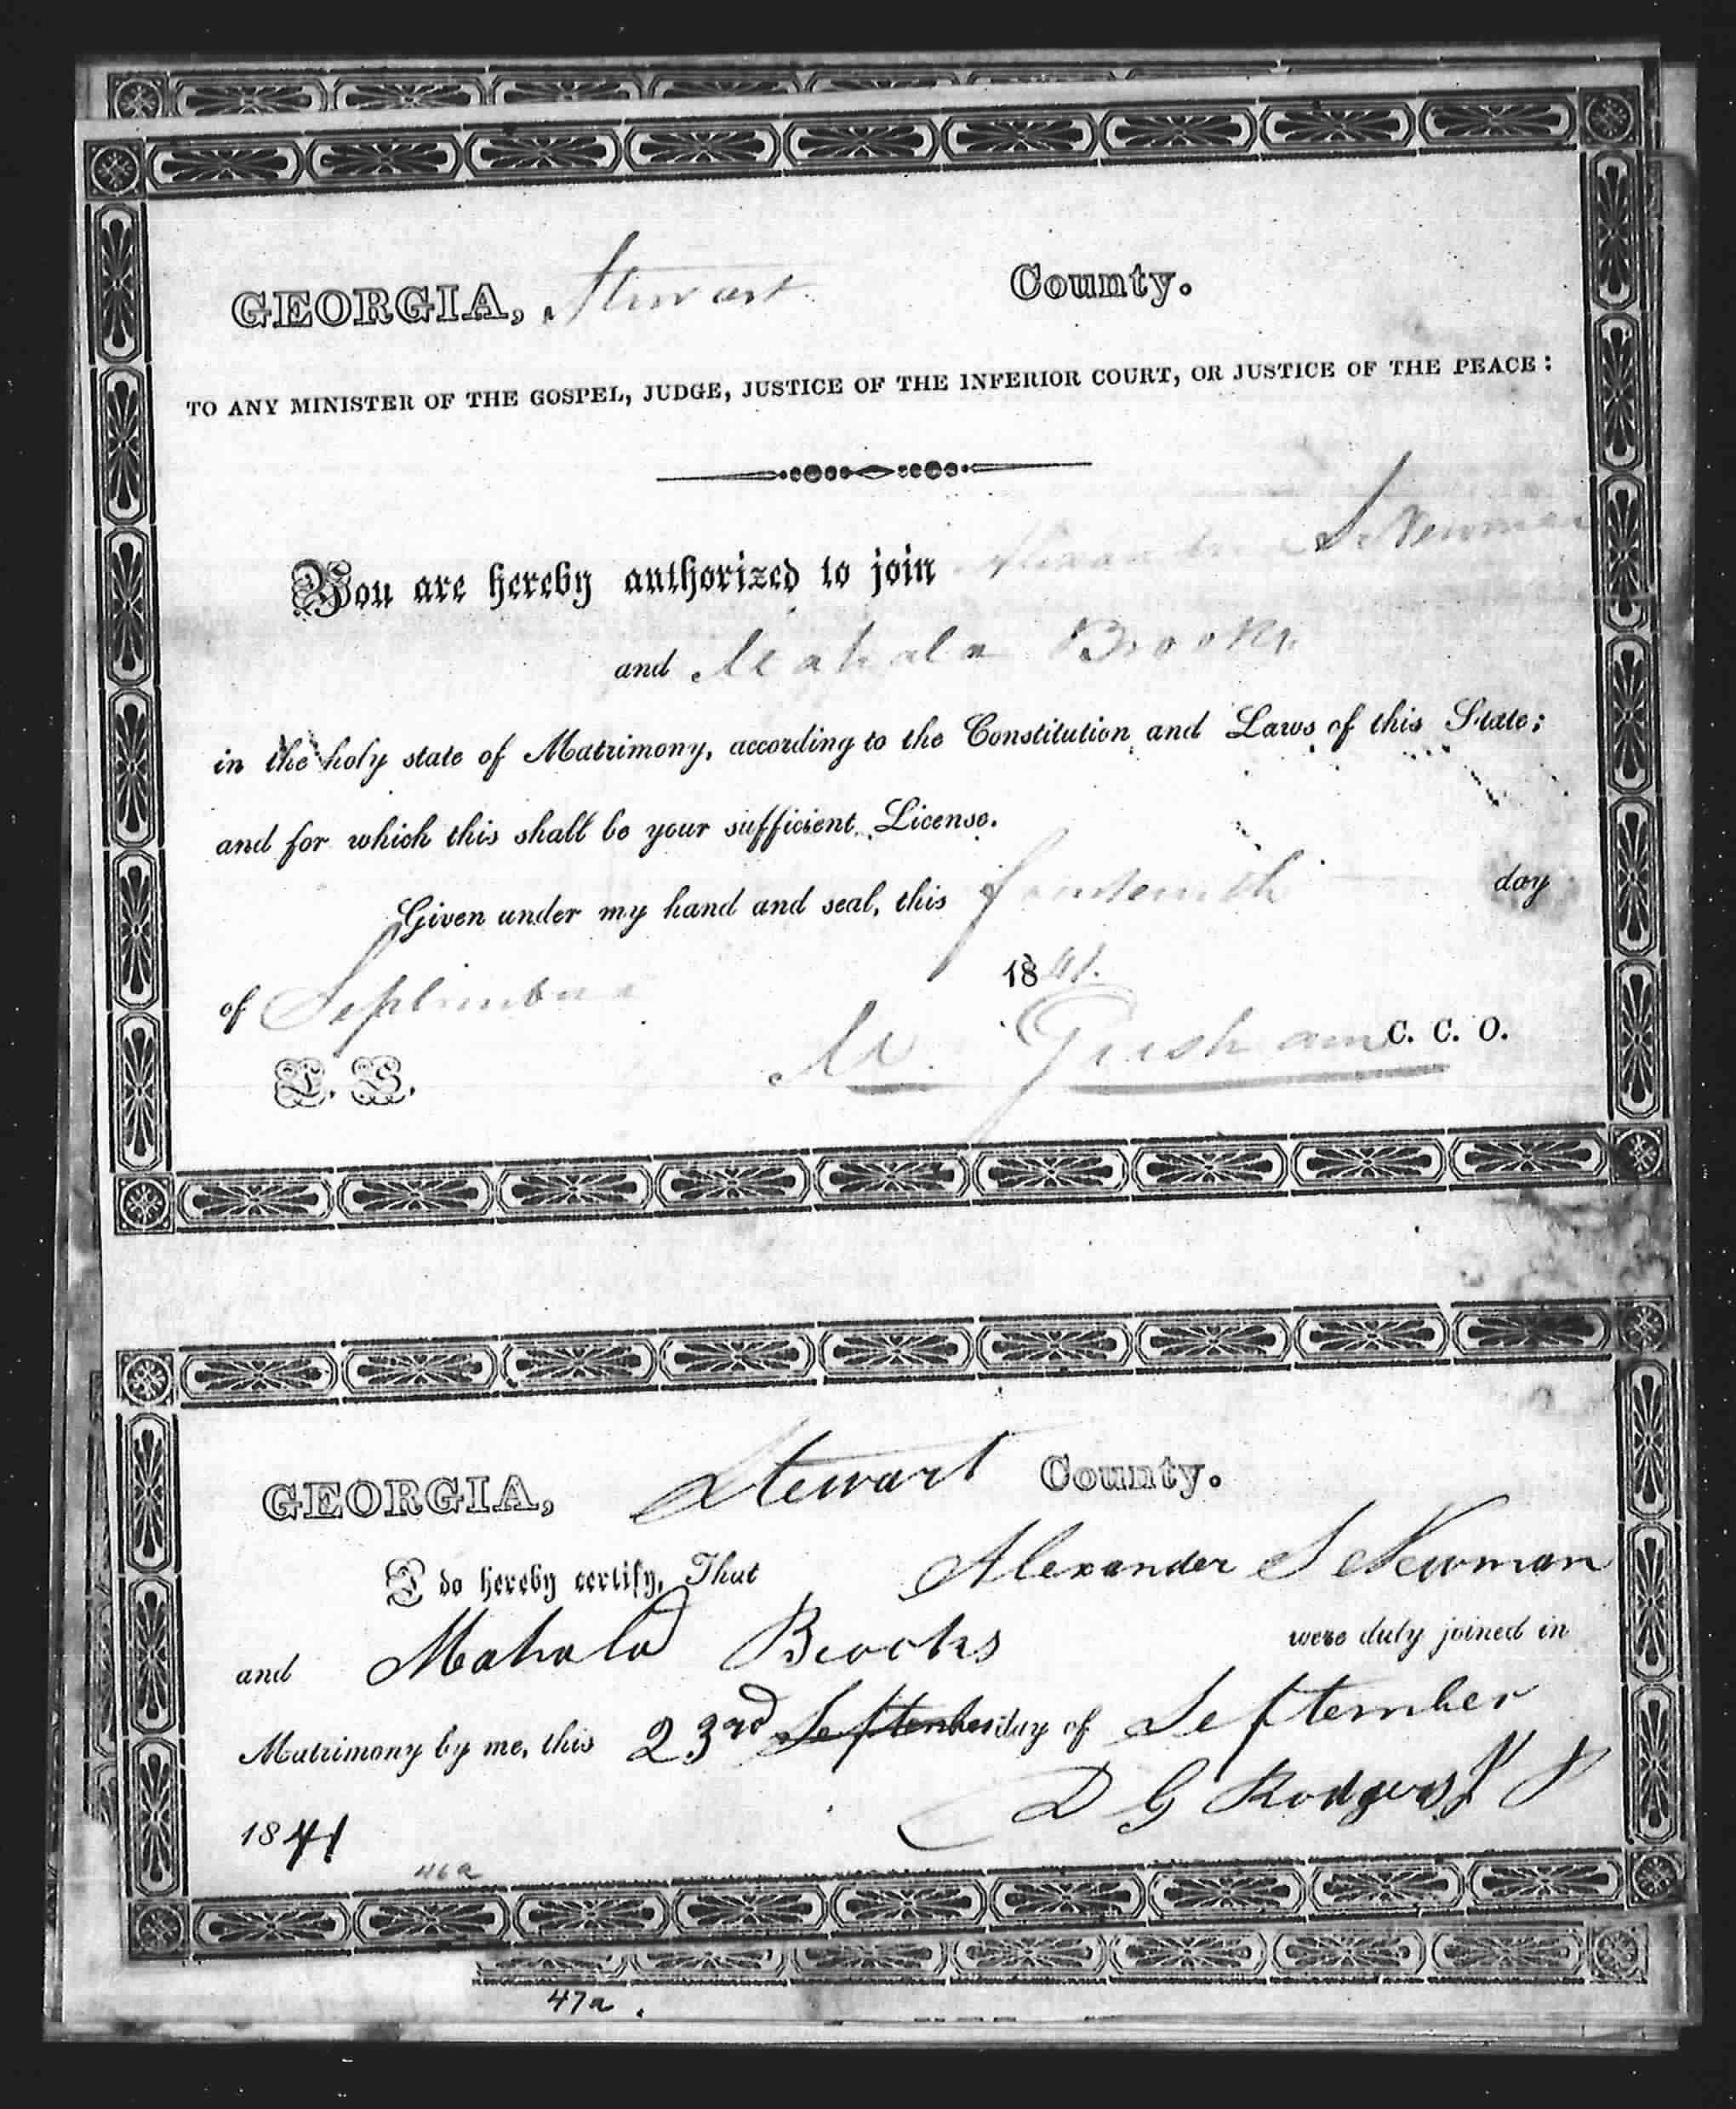 GEORGIA, Stewart County.
TO ANY MINISTER OF THE GOSPEL, JUDGE, JUSTICE OF THE INFERIOR COURT, OR JUSTICE OF THE PEACE:
You are hereby authorized to join Alexander S Newman
and Mahala Brooks
in the holy state of Matrimony, according to the Constitution and Laws of this State;
and for which this shall be your sufficient License.
Given under my hand and seal, this fourteenth day
of September 1841.
L. S. M. Gresham C. C. O.
GEORGIA, Stewart County.
I do hereby certify, That Alexander S Newman
and Mahala Brooks were duly joined in
Matrimony by me, this 23rd September day of September
1841 D G Rodgers J P
46a
47a